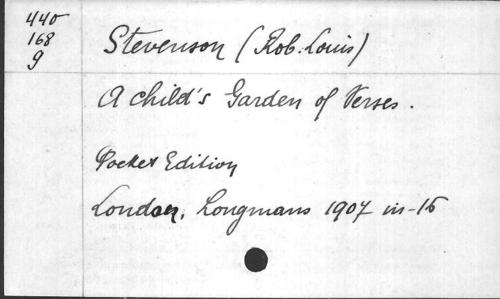 440
168
g
Stevenson (Rob. Louis)
A child's Garden of Verses.
Pocket Edition
London, Longmans 1907 in-16